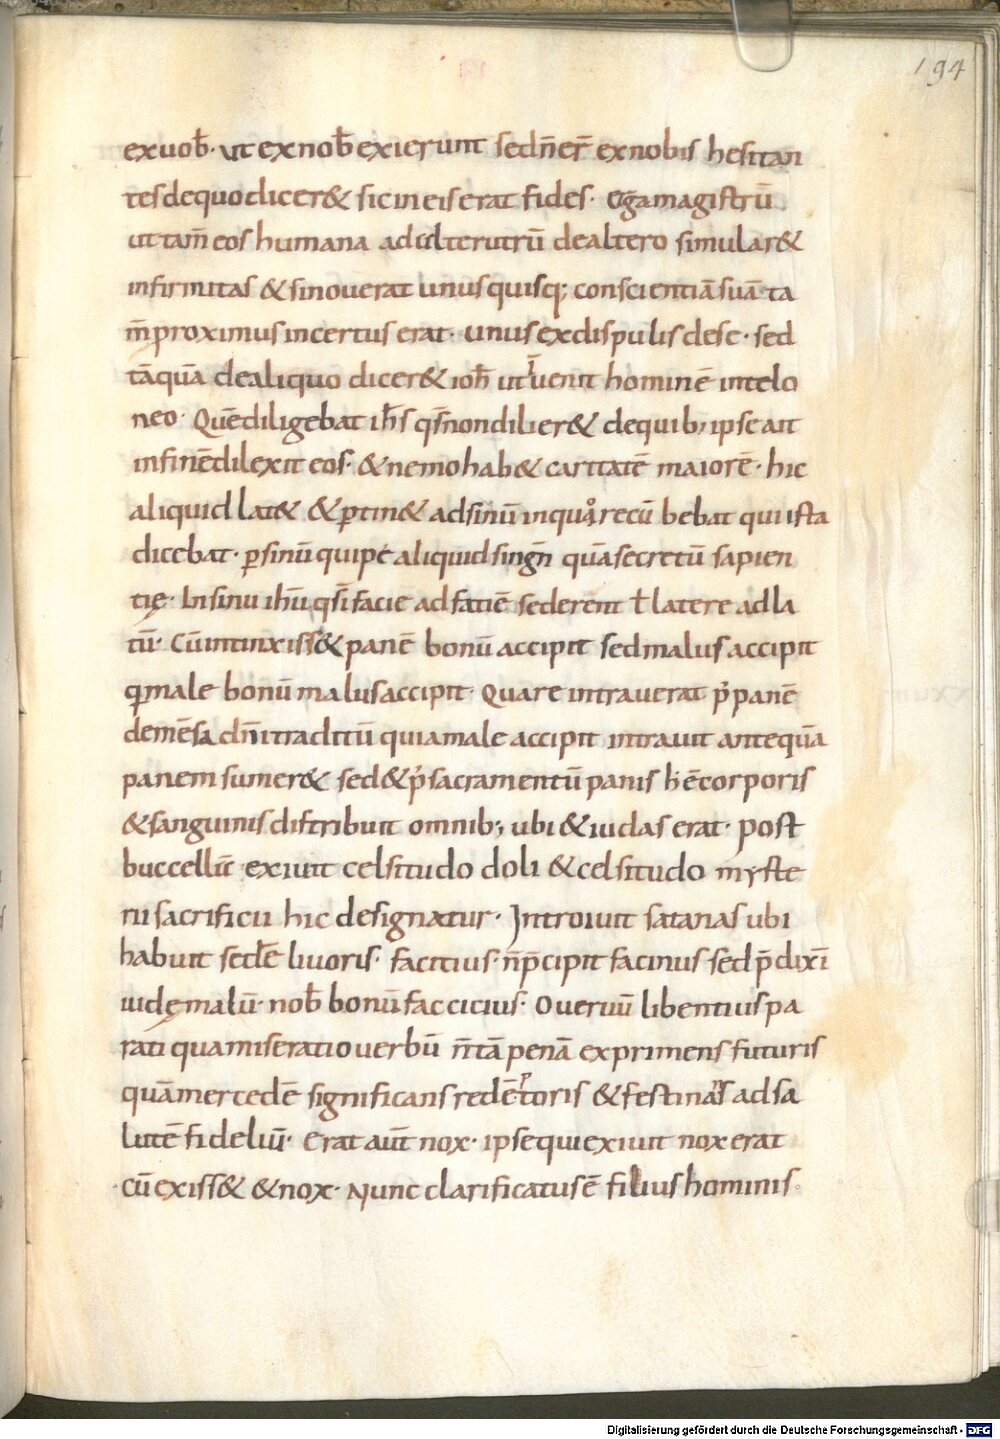 194
exuob̄· ut exnob̄ exierunt sedn̄er̄ exnobis hesitan
tesdequodicer& sicineiserat fides· Ergamagistrū
uttam̄ eos humana adalterutrū dealtero simular&
infirmitas &sinouerat unusquisq; conscientiāsuā· ta
m̄proximusincertuserat· unusexdispulisdesc· sed
tāquā dealiquo dicer& ioh̄ utr̄uenit hominē intelo
neo· Quēdiligebat ih̄s qs̄nondilier& dequib; ipseait
infinēdilexit eos· &nemohab& caritatē maiorē· hic
aliquid lat& &ꝑtin& adsinū inquorecū bebat quiista
dicebat· ꝑsinū quipe aliquidsingn̄ quāsecretū sapien
tię· Insinu ihū qs̄i facie adfatiē sederent ł latere adla
tū· Cūintinxiss& panē bonū accipit sedmalus accipit
qꝛmale bonū malusaccipit· Quare intrauerat p̓ panē
demēsa dn̄i traditū quiamale accipit intrauit antequā
panem sumer& sed&p̓sacramentū panis h̄ ē corporis
&sanguinisdistribuit omnib; ubi &iudas erat· post
buccellū exiuit celsitudo doli &celsitudo myste
rii sacrificii hic designatur· Introiuit satanas ubi
habuit sedē liuoris· facitius· n̄p̄cipit facinus sedp̄dixī
iudęmalū· nob̄ bonū faccicius· O uerūū libentiuspa
rati quamiseratiouerbū n̄tā penā exprimens futuris
quāmercedē significans redētoris &festinās adsa
lutē fideliū· Erat aut̄ nox· ipsequiexiuit noxerat
cū exiss& &nox· Nunc clarificatusē filius hominis
Digitalisierung gefördert durch die Deutsche Forschungsgemeinschaft - DFG